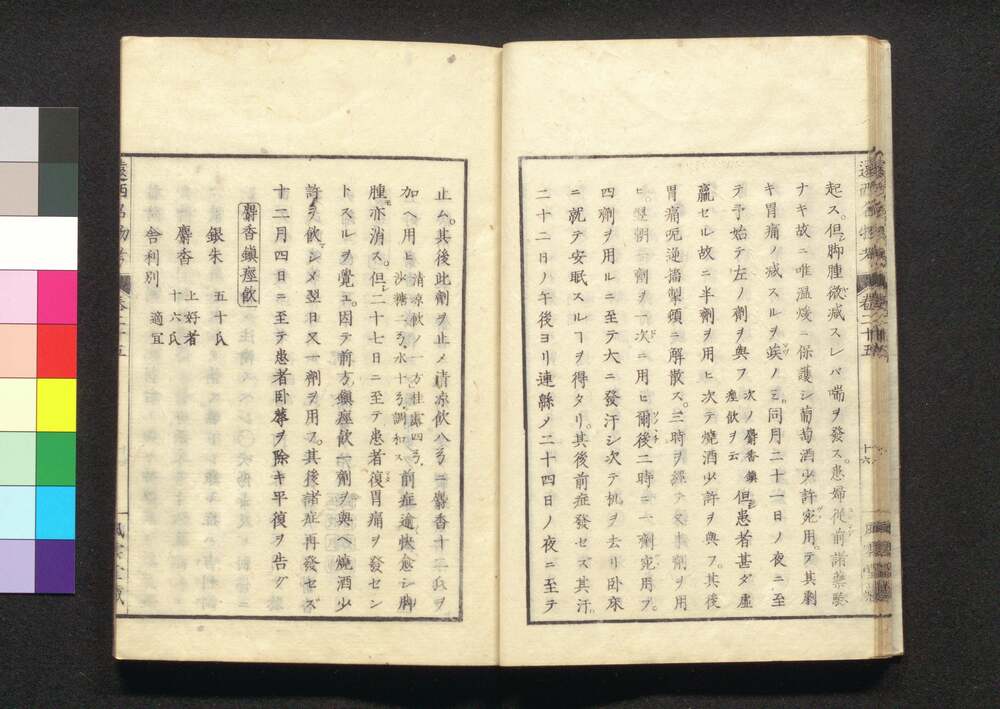 起ス。但脚腫微減スレバ喘ヲ發ス。患婦從前諸藥驗
ナキ故ニ唯温煖ニ保護シ葡萄酒少許宛用テ其劇
キ胃痛ノ減スルヲ竢ノミ。同月二十一日ノ夜ニ至
テ予始テ左ノ劑ヲ與フ 次ノ麝香鎮
痙飲ヲ云 但患者甚ダ虚
羸セル故ニ半劑ヲ用ヒ次テ燒酒少許ヲ與フ。其後
胃痛呃逆搐掣頓ニ解散ス。三時ヲ經テ又半劑ヲ用
ヒ。翌朝一劑ヲ一次ニ用ヒ爾後二時ニ一劑宛用フ。
四劑ヲ用ルニ至テ大ニ發汗シ次テ机ヲ去リ卧床
ニ就テ安眠スルヿヲ得タリ。其後前症發セズ其汗
二十二日ノ午後ヨリ連緜メ二十四日ノ夜ニ至テ
止ム。其後此劑ヲ止メ清凉飲八ニ麝香十二氏ヲ
加ヘ用ヒ 清凉飲ノ一方桂露四
沙糖二水十調和ス 前症遂快愈シ脚
腫亦消ス。但二十七日ニ至テ患者復胃痛ヲ發セン
トスルヲ覺ユ。因テ前方鎮痙飲一劑ヲ與ヘ燒酒少
許ヲ飲シメ翌日又一劑ヲ用フ。其後諸症再發セズ
十二月四日ニ至テ患者卧蓐ヲ除キ平復ヲ告グ
麝香鎮痙飲
銀朱 五十氏
麝香 上好者
十六氏
舎利別 適宜